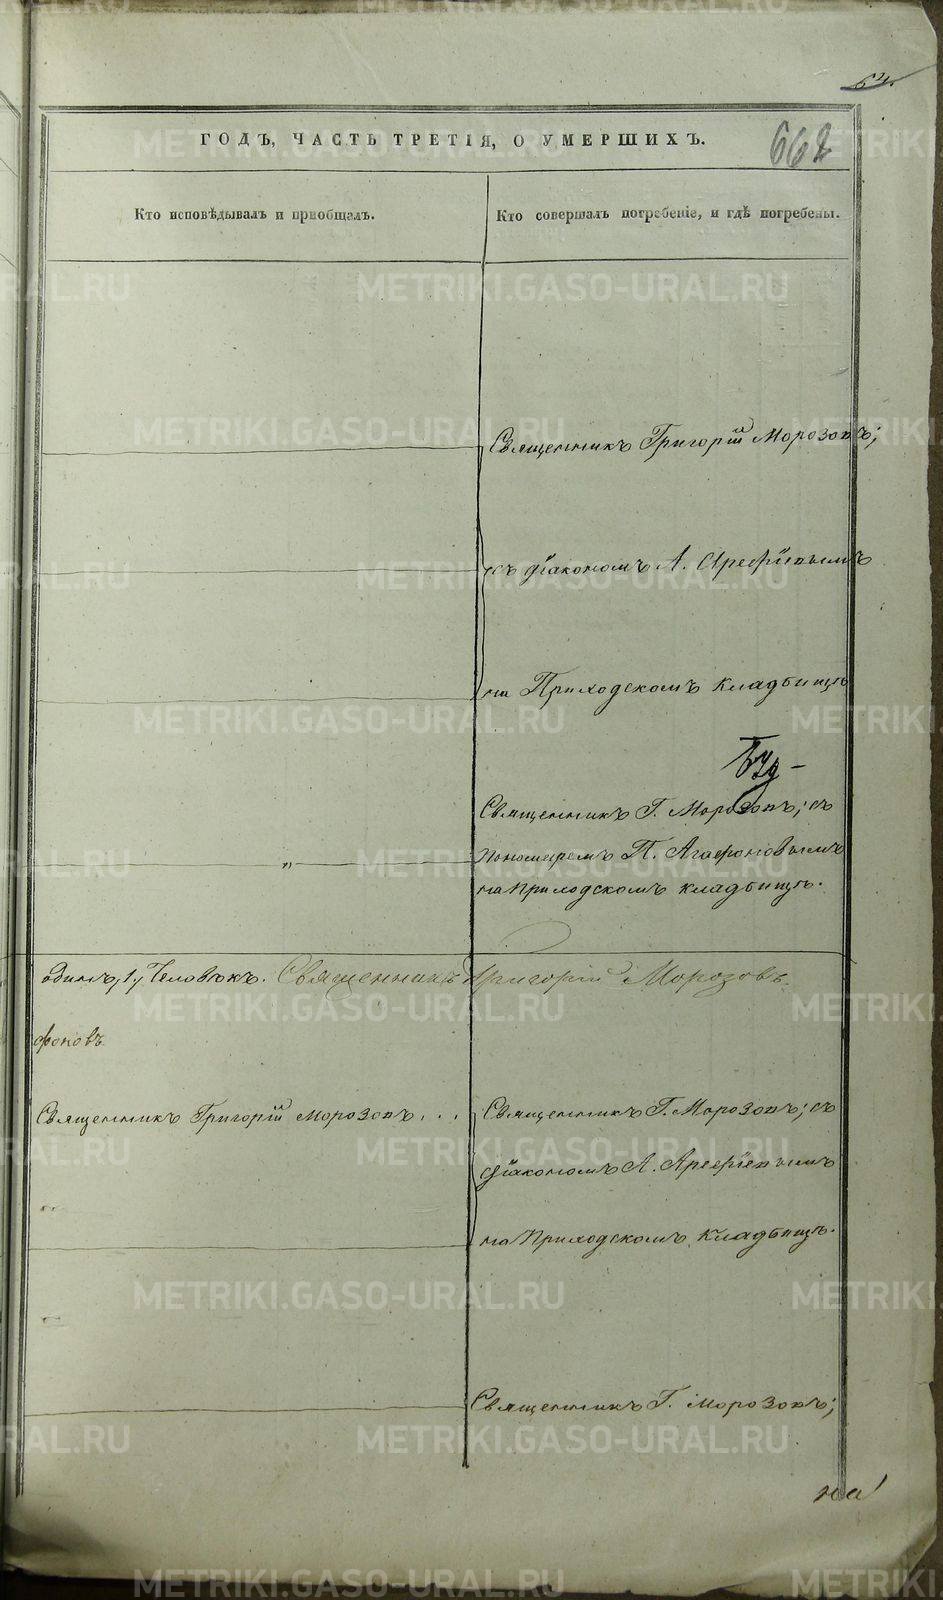 64.
ГОДЪ, ЧАСТЬ ТРЕТІЯ, О УМЕРШИХЪ.
662
Кто исповѣдывалъ и пріобщалъ.
Кто совершалъ погребеніе, и гдѣ погребены.
Священникъ Григорій Морозовъ;
съ діакономъ А. Арефіевымъ
на Приходскомъ кладбищѣ
Священникъ Г. Морозовъ; съ
пономаремъ П. Агафоновымъ
на Приходскомъ кладбищѣ.
"
одинъ, 1, человѣкъ. Священникъ Григорій Морозовъ.
фоновъ
Священникъ Григорій Морозовъ . . .
Священникъ Г. Морозовъ; съ
діакономъ А. Арефіевымъ
на Приходскомъ кладбищѣ.
Священникъ Г. Морозовъ;
на
METRIKI.GASO-URAL.RU